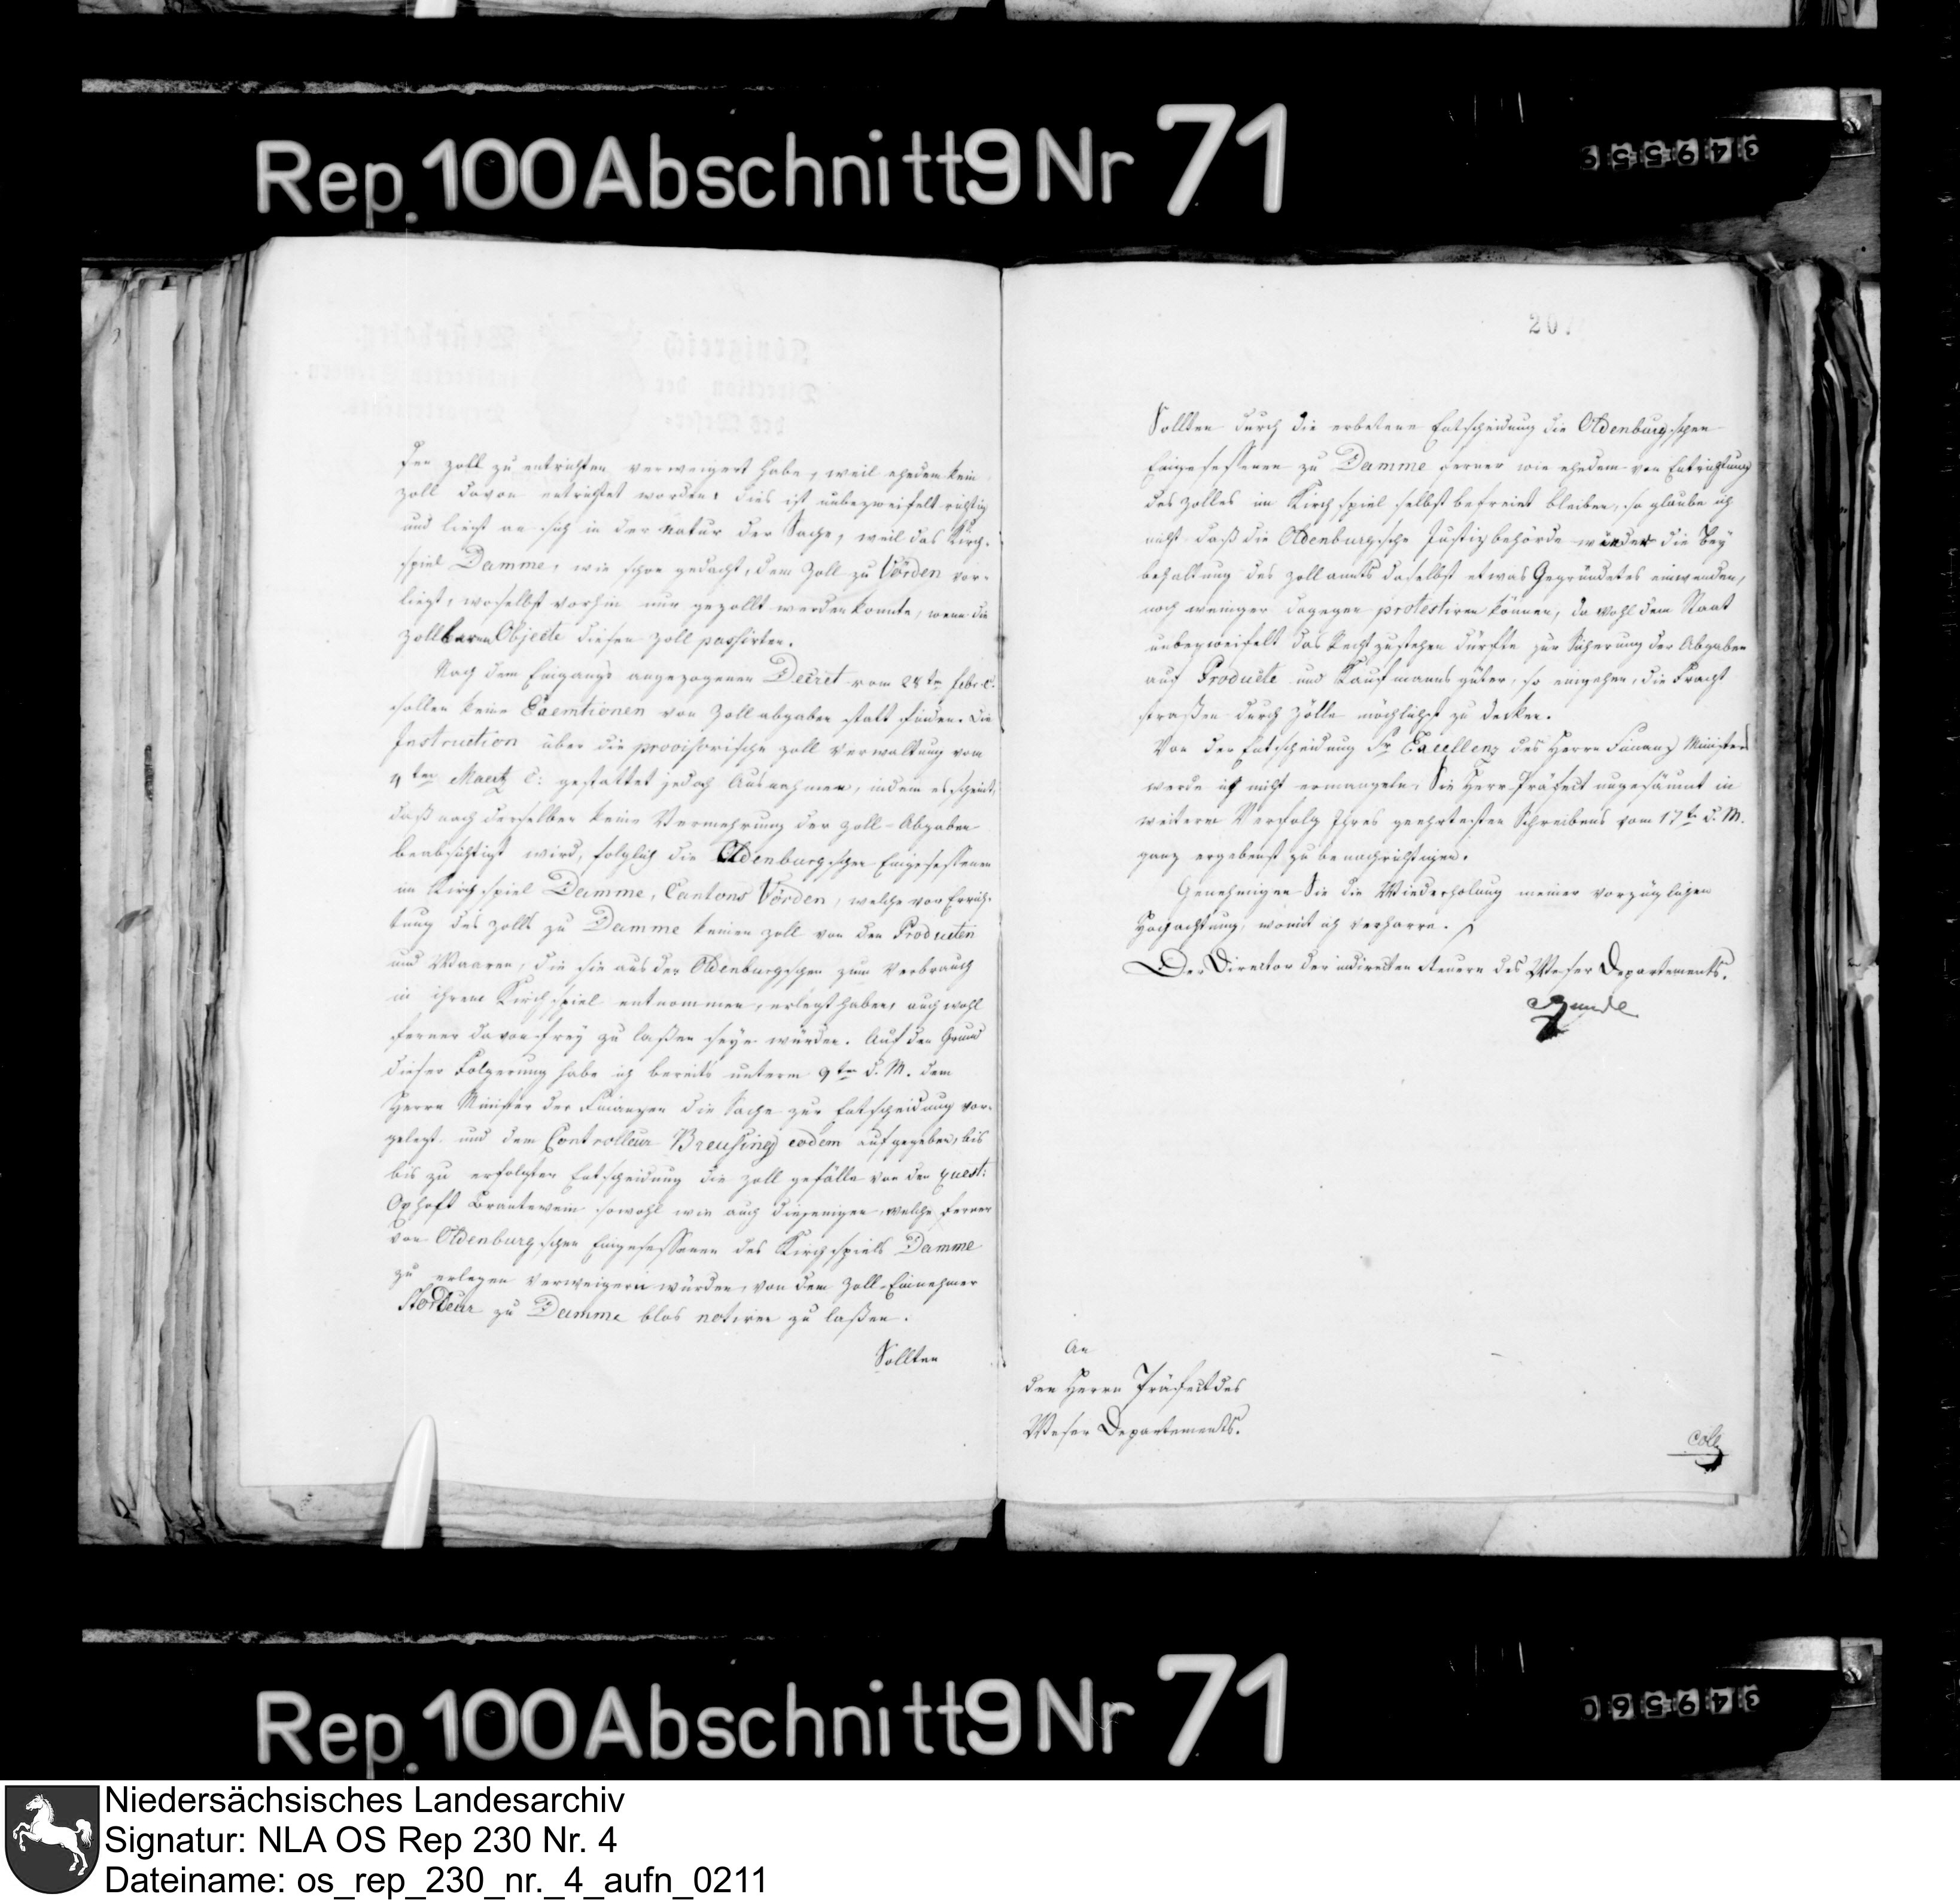 Rep. 100 Abschnitt 9 Nr 71
349559
207
den Zoll zu entrichten verweigert habe, weil ehedem kein
Zoll davon entrichtet worden; dies ist unbezweifelt richtig
und liegt an sich in der Natur der Sache, weil das Kirch-
spiel Damme, wie schon gedacht, dem Zoll zu Vörden vor-
liegt, woselbst vorhin nur gezollt werden konnte, wenn die
zollbaren Objecte diesen Zoll passirten.
Nach dem Eingangs angezogenen Decret vom 28ten Febr. c.
sollen keine Exemtionen von Zollabgaben statt finden. Die
Instruction über die provisorische Zoll Verwaltung vom
4ten Maertz c: gestattet jedoch Ausnahmen, indem es scheint,
daß nach derselben keine Vermehrung der Zoll-Abgaben
beabsichtigt wird, folglich die Oldenburgschen Eingesessenen
im Kirchspiel Damme, Cantons Vörden, welche vor Errich-
tung des Zolls zu Damme keinen Zoll von den Producten
und Waaren, die sie aus den Oldenburgschen zum Verbrauch
in ihrem Kirchspiel entnommen, erlegt haben, auch wohl
ferner davon frey zu laßen seyn würden. Auf den Grund
dieser Folgerung habe ich bereits unterm 9ten d. M. dem
Herrn Minister der Finanzen die Sache zur Entscheidung vor-
gelegt und dem Controlleur Breusing eodem aufgegeben, bis
bis zu erfolgten Entscheidung die Zoll gefälle von den quest:
Oxhoft Brantewein sowohl wie auch diejenigen, welche ferner
von Oldenburgschen Eingesessenen des Kirchspiels Damme
zu erlegen verweigern würden, von dem Zoll-Einnehmer
zu Damme blos notiren zu laßen.
Sollten
Sollten durch die erbetene Entscheidung die Oldenburgschen
Eingesessenen zu Damme ferner wie ehedem von Entrichtung
des Zolles im Kirchspiel selbst befreiet bleiben, so glaube ich
nicht daß die Oldenburgsche Justizbehörde wieder die Bey
behaltung des Zollamts daselbst etwas Gegründetes einwenden,
noch weniger dagegen protestiren können, da wohl dem Staat
unbezweifelt das Recht zustehen dürfte zur Sicherung der Abgaben
auf Producte und Kaufmannsgüter, so eingehen, die Fracht
straßen durch Zölle möglichst zu decken.
Von der Entscheidung Sr Excellenz des Herrn Finanz Ministers
werde ich nicht ermangeln, Sie Herr Präfect ungesäumt in
weitern Verfolg Ihres geehrtesten Schreibens vom 17ten d. M.
ganz ergebenst zu benachrichtigen.
Genehmigen Sie die Wiederholung meiner vorzüglichen
Hochachtung, womit ich verharre.
Der Director der indirecten Steuern des Weser Departements.
An
den Herrn Präfect des
Weser Departements.
coll
Rep. 100 Abschnitt 9 Nr 71
349560
Niedersächsisches Landesarchiv
Signatur: NLA OS Rep 230 Nr. 4
Dateiname: os_rep_230_nr._4_aufn_0211